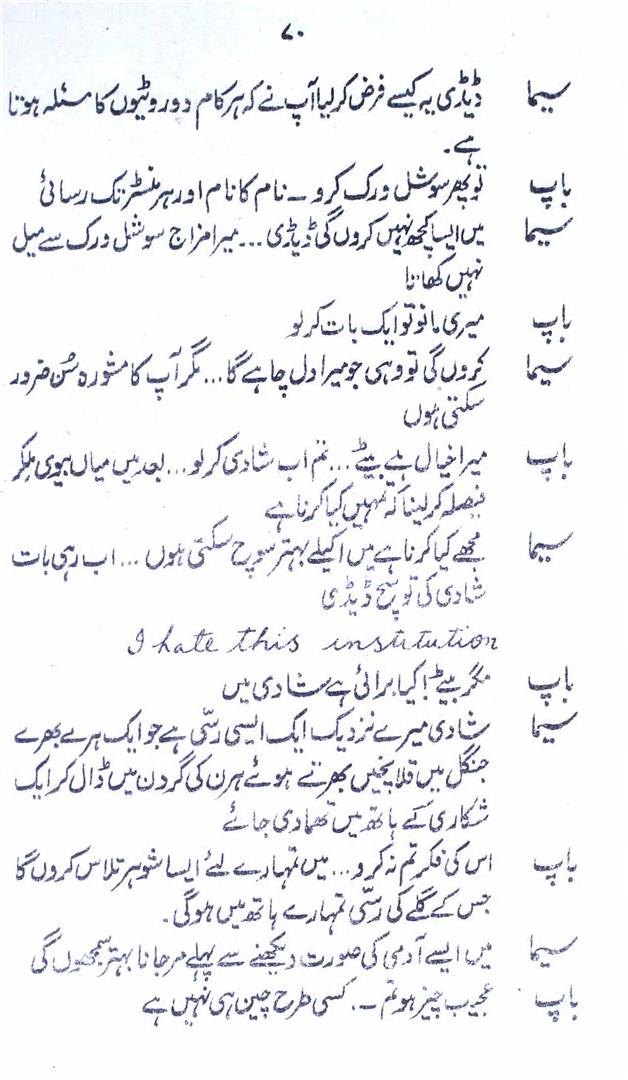 ۷۰
سیما ڈیڈی یہ کیسے فرض کر لیا آپ نے کہ ہر کام دو روٹیوں کا مسئلہ ہوتا
ہے۔
باپ تو پھر سوشل ورک کرو ۔ نام کا نام اور ہر منسٹر تک رسائی
سیما میں ایسا کچھ نہیں کروں گی ڈیڈی ... میرا مزاج سوشل ورک سے میل
نہیں کھاتا
باپ میری مانو تو ایک بات کر لو
سیما کروں گی تو وہی جو میرا دل چاہے گا ... مگر آپ کا مشورہ سُن ضرور
سکتی ہوں
باپ میرا خیال ہے بیٹے ... تم اب شادی کر لو ... بعد میں میاں بیوی ملکر
فیصلہ کر لینا کہ تمہیں کیا کرنا ہے
سیما مجھے کیا کرنا ہے میں اکیلے بہتر سوچ سکتی ہوں ... اب رہی بات
شادی کی تو سچ ڈیڈی
I hate this institution
باپ مگر بیٹے! کیا برائی ہے شادی میں
سیما شادی میرے نزدیک ایک ایسی رسّی ہے جو ایک ہرے بھرے
جنگل میں قلانچیں بھرتے ہوئے ہرن کی گردن میں ڈال کر ایک
شکاری کے ہاتھ میں تھما دی جائے
باپ اس کی فکر تم نہ کرو ... میں تمہارے لئے ایسا شوہر تلاس کروں گا
جس کے گلے کی رسّی تمہارے ہاتھ میں ہوگی۔
سیما میں ایسے آدمی کی صورت دیکھنے سے پہلے مر جانا بہتر سمجھوں گی
باپ عجیب چیز ہو تم ۔. کسی طرح چین ہی نہیں ہے